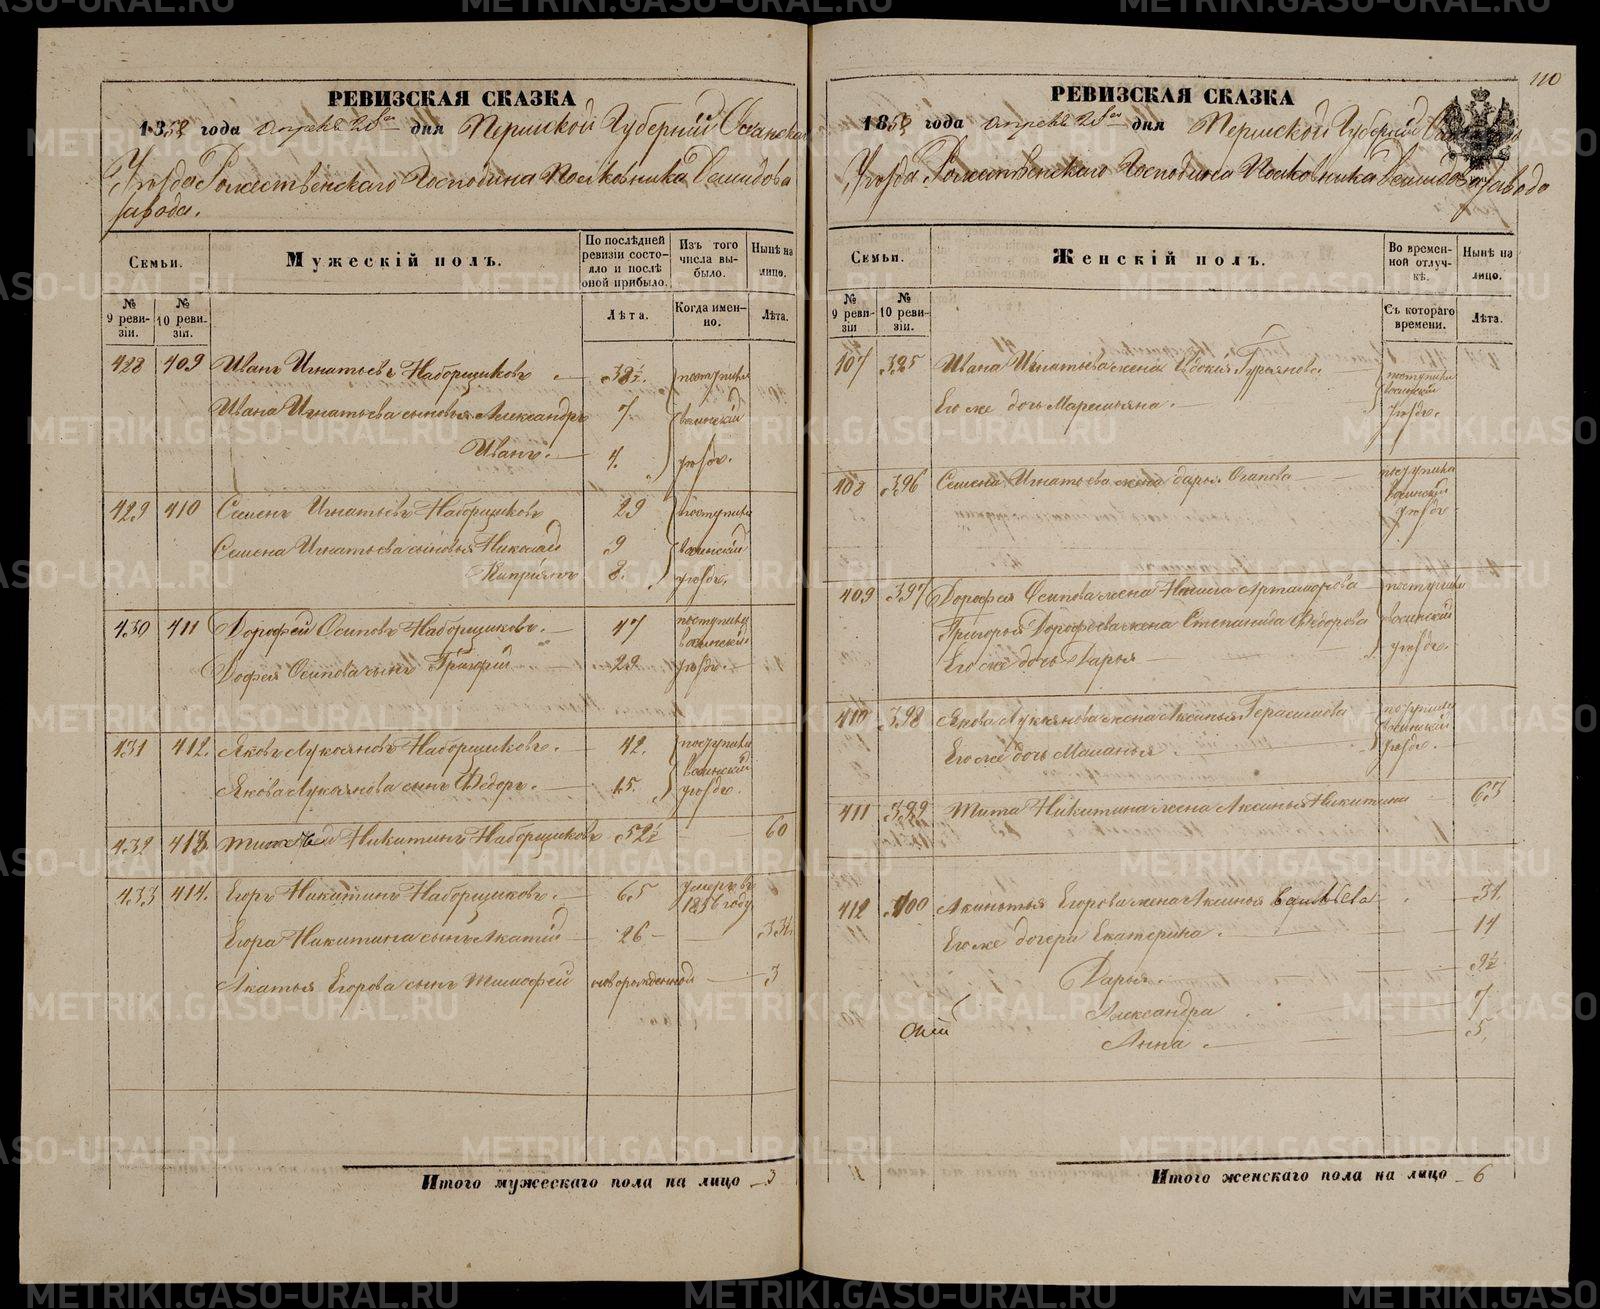 110
РЕВИЗСКАЯ СКАЗКА
1858 года апреля 28го дня Пермской Губернии Оханскаго
Уезда Рожественскаго Господина Полковника Демидова
завода.
Семьи.
Мужескій полъ.
По послѣдней ревизіи состояло и послѣ оной прибыло.
Изъ того числа выбыло.
Нынѣ на лицо.
№ 9 ревизіи.
№ 10 ревизіи.
Лѣта.
Когда именно.
Лѣта.
428 409 Иванъ Игнатьевъ Наборщиковъ поступили
Ивана Игнатьева сыновья Александръ 7
Иванъ 4. уездъ.
429 410 Семенъ Игнатьевъ Наборщиковъ 29 поступили
Семена Игнатьева сыновья Николай 9
Киприянъ 8. уездъ.
430 411 Дорофей Осиповъ Наборщиковъ 47 поступили
Дофея Осипова сынъ Григорий уездъ.
431 412. Яковъ Лукояновъ Наборщиковъ 42. поступили
Якова Лукоянова сынъ Федоръ 15. уездъ.
432 413 Никитинъ Наборщиковъ 52½ 60
433 414. Егоръ Никитинъ Наборщиковъ 65 умеръ въ 1856 году
Егора Никитина сынъ Акатий 26
Акатья Егорова сынъ Тимофей новорожденной 3
Итого мужескаго пола на лицо 3
РЕВИЗСКАЯ СКАЗКА
1858 года апреля 28го дня Пермской Губернии
Уезда Рожественскаго Господина Полковника Демидова завода
Семьи.
Женскій полъ.
Во временной отлучкѣ.
Нынѣ на лицо.
№ 9 ревизіи
№ 10 ревизіи.
Съ котораго времени.
Лѣта.
407 395 Ивана Игнатьева жена поступили
Его же дочь Маремьяна. уездъ.
408 396 Семена Игнатьева жена Дарья Осипова поступили
уездъ
409 397 Дорофея Осипова жена Артамонова поступили
Григорья Дорофеева жена Степанида Федорова
Его же дочь Дарья уездъ.
410 398 Якова Лукоянова жена Аксинья Герасимова поступили
Его же дочь Маланья уездъ.
411 399 Тита Никитина жена Аксинья Никитина 63
412 400 Акинтья Егорова жена Аксинья Васильева 31.
Его же дочери Екатерина 14
Дарья 9½
Александра 7
Анна 5,
Итого женскаго пола на лицо 6
METRIKI.GASO-URAL.RU